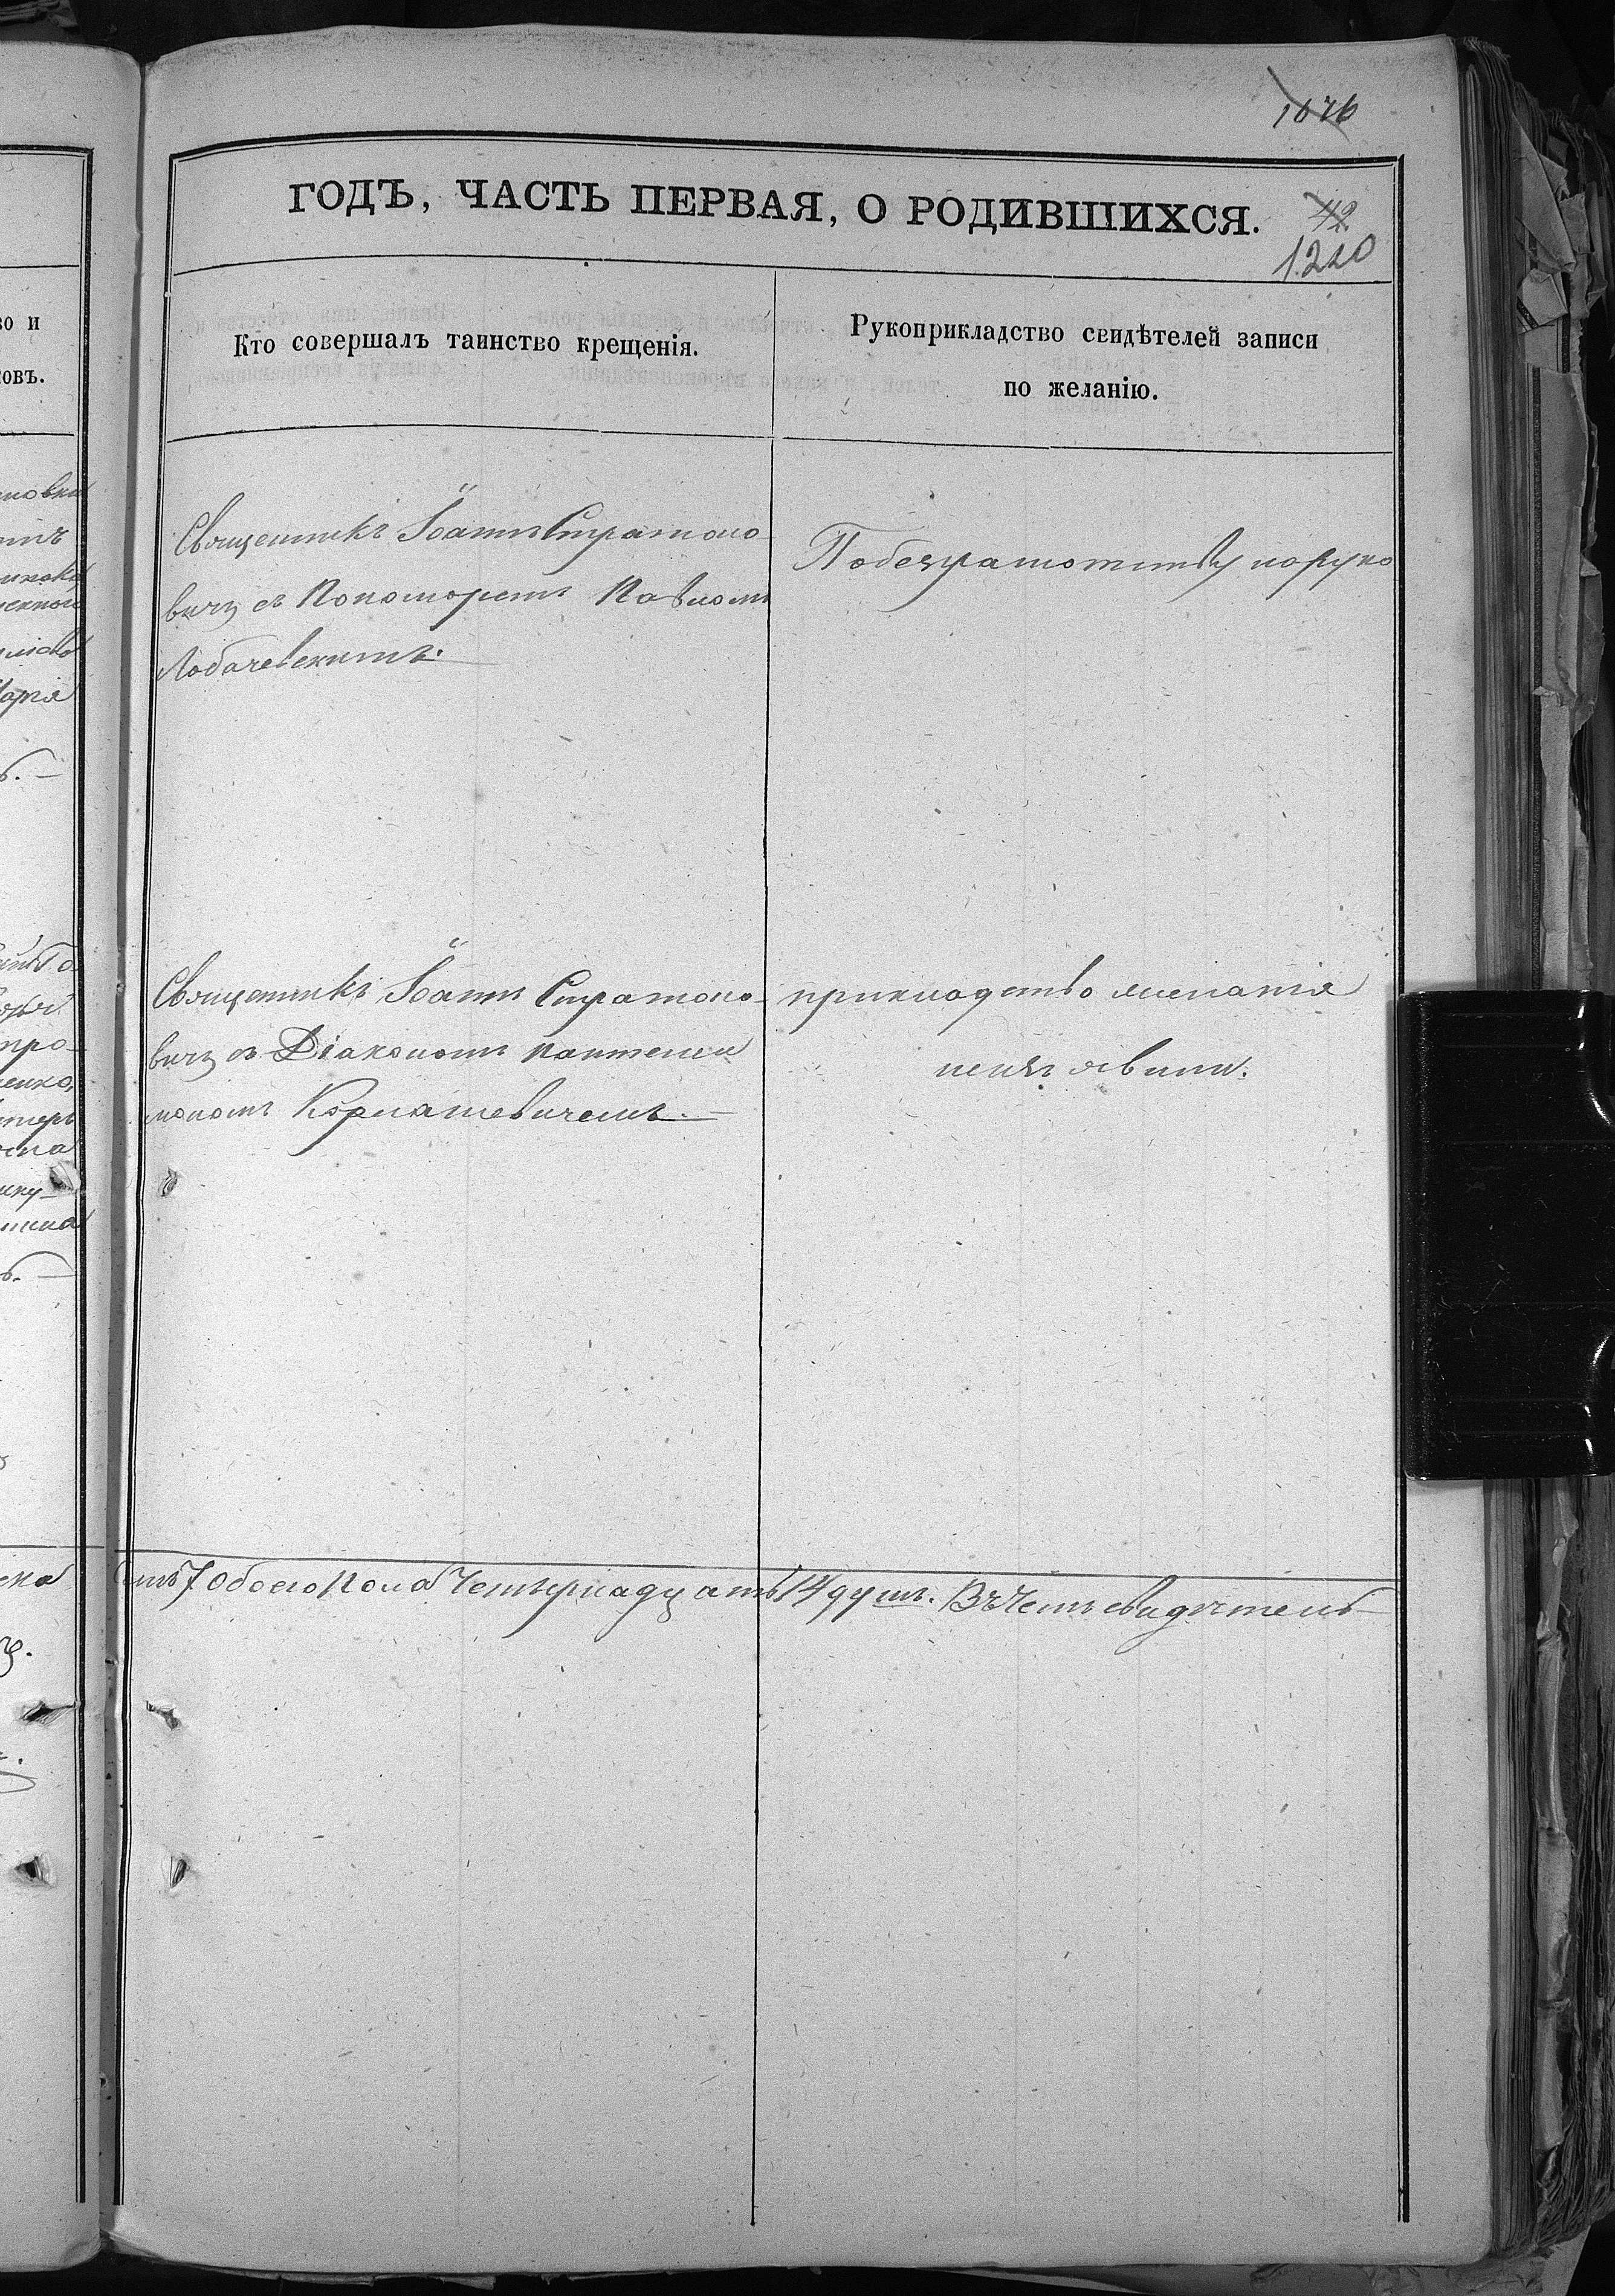 1076
ГОДЪ, ЧАСТЬ ПЕРВАЯ, О РОДИВШИХСЯ.
42
1220
Кто совершалъ таинство крещенія.
Рукоприкладство свидѣтелей записи
по желанію.
Священникъ Іоаннъ Стратоно
вичъ съ Пономоремъ Павломъ
Лобачевскимъ.
По безграмотству наруко
Священникъ Іоаннъ Стратоно-
вичъ съ Діакономъ Пантелеи
мономъ Корнашевичемъ.
прикладство желанія
неизъявили.
7 обоего Пола Четырнадцать 14 душъ. Въ Чемъ свидѣтель-